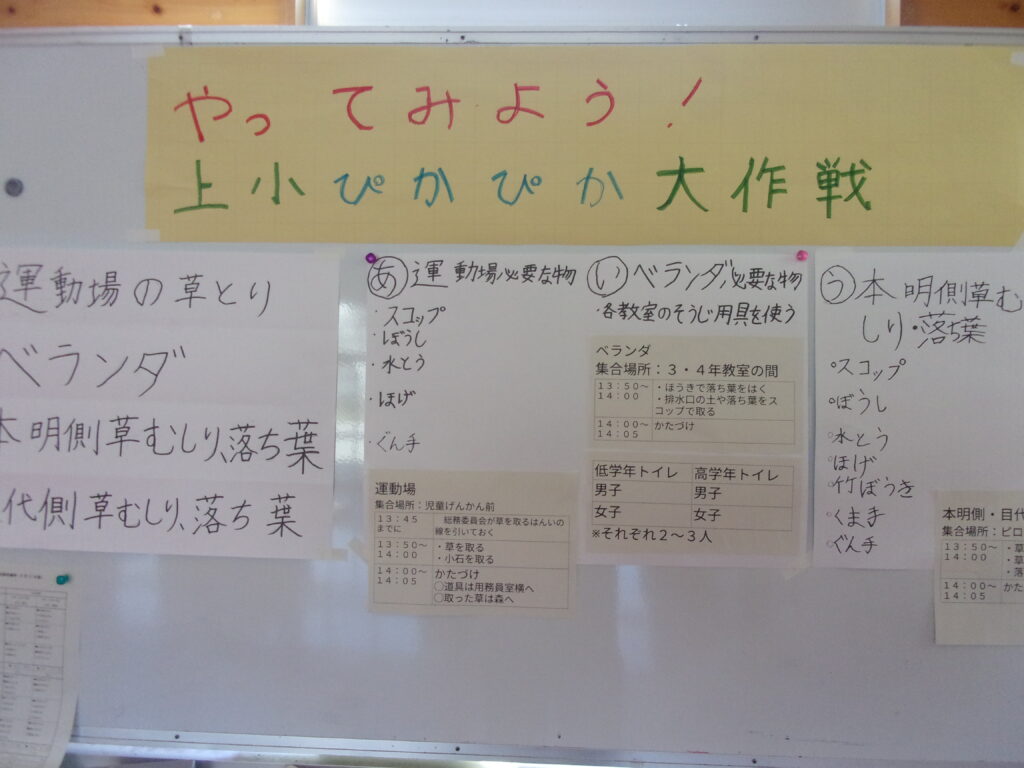 やってみよう!
上小ぴかぴか大作戦
運動場の草とり
ベランダ
本明側草むしり、落ち葉
代側草むしり、落ち葉
あ 運動場/必要な物
・スコップ
・ぼうし
・水とう
・ほげ
・ぐん手
運動場
集合場所：児童げんかん前
13:45までに 総務委員会が草を取るはんいの線を引いておく
13:50～14:00 ・草を取る
・小石を取る
14:00～14:05 かたづけ
○道具は用務員室横へ
○取った草は森へ
い ベランダ/必要な物
・各教室のそうじ用具を使う
ベランダ
集合場所：３・４年教室の間
13:50～14:00 ・ほうきで落ち葉をはく
・排水口の土や落ち葉をスコップで取る
14:00～14:05 かたづけ
低学年トイレ 高学年トイレ
男子 男子
女子 女子
※それぞれ２～３人
う 本明側草む
しり・落ち葉
・スコップ
・ぼうし
・水とう
・ほげ
・竹ぼうき
・くまで
・ぐん手
本明側・目代
集合場所：ピロ
13:50～14:00 ・草
・草
・落
14:00～14:05 かた